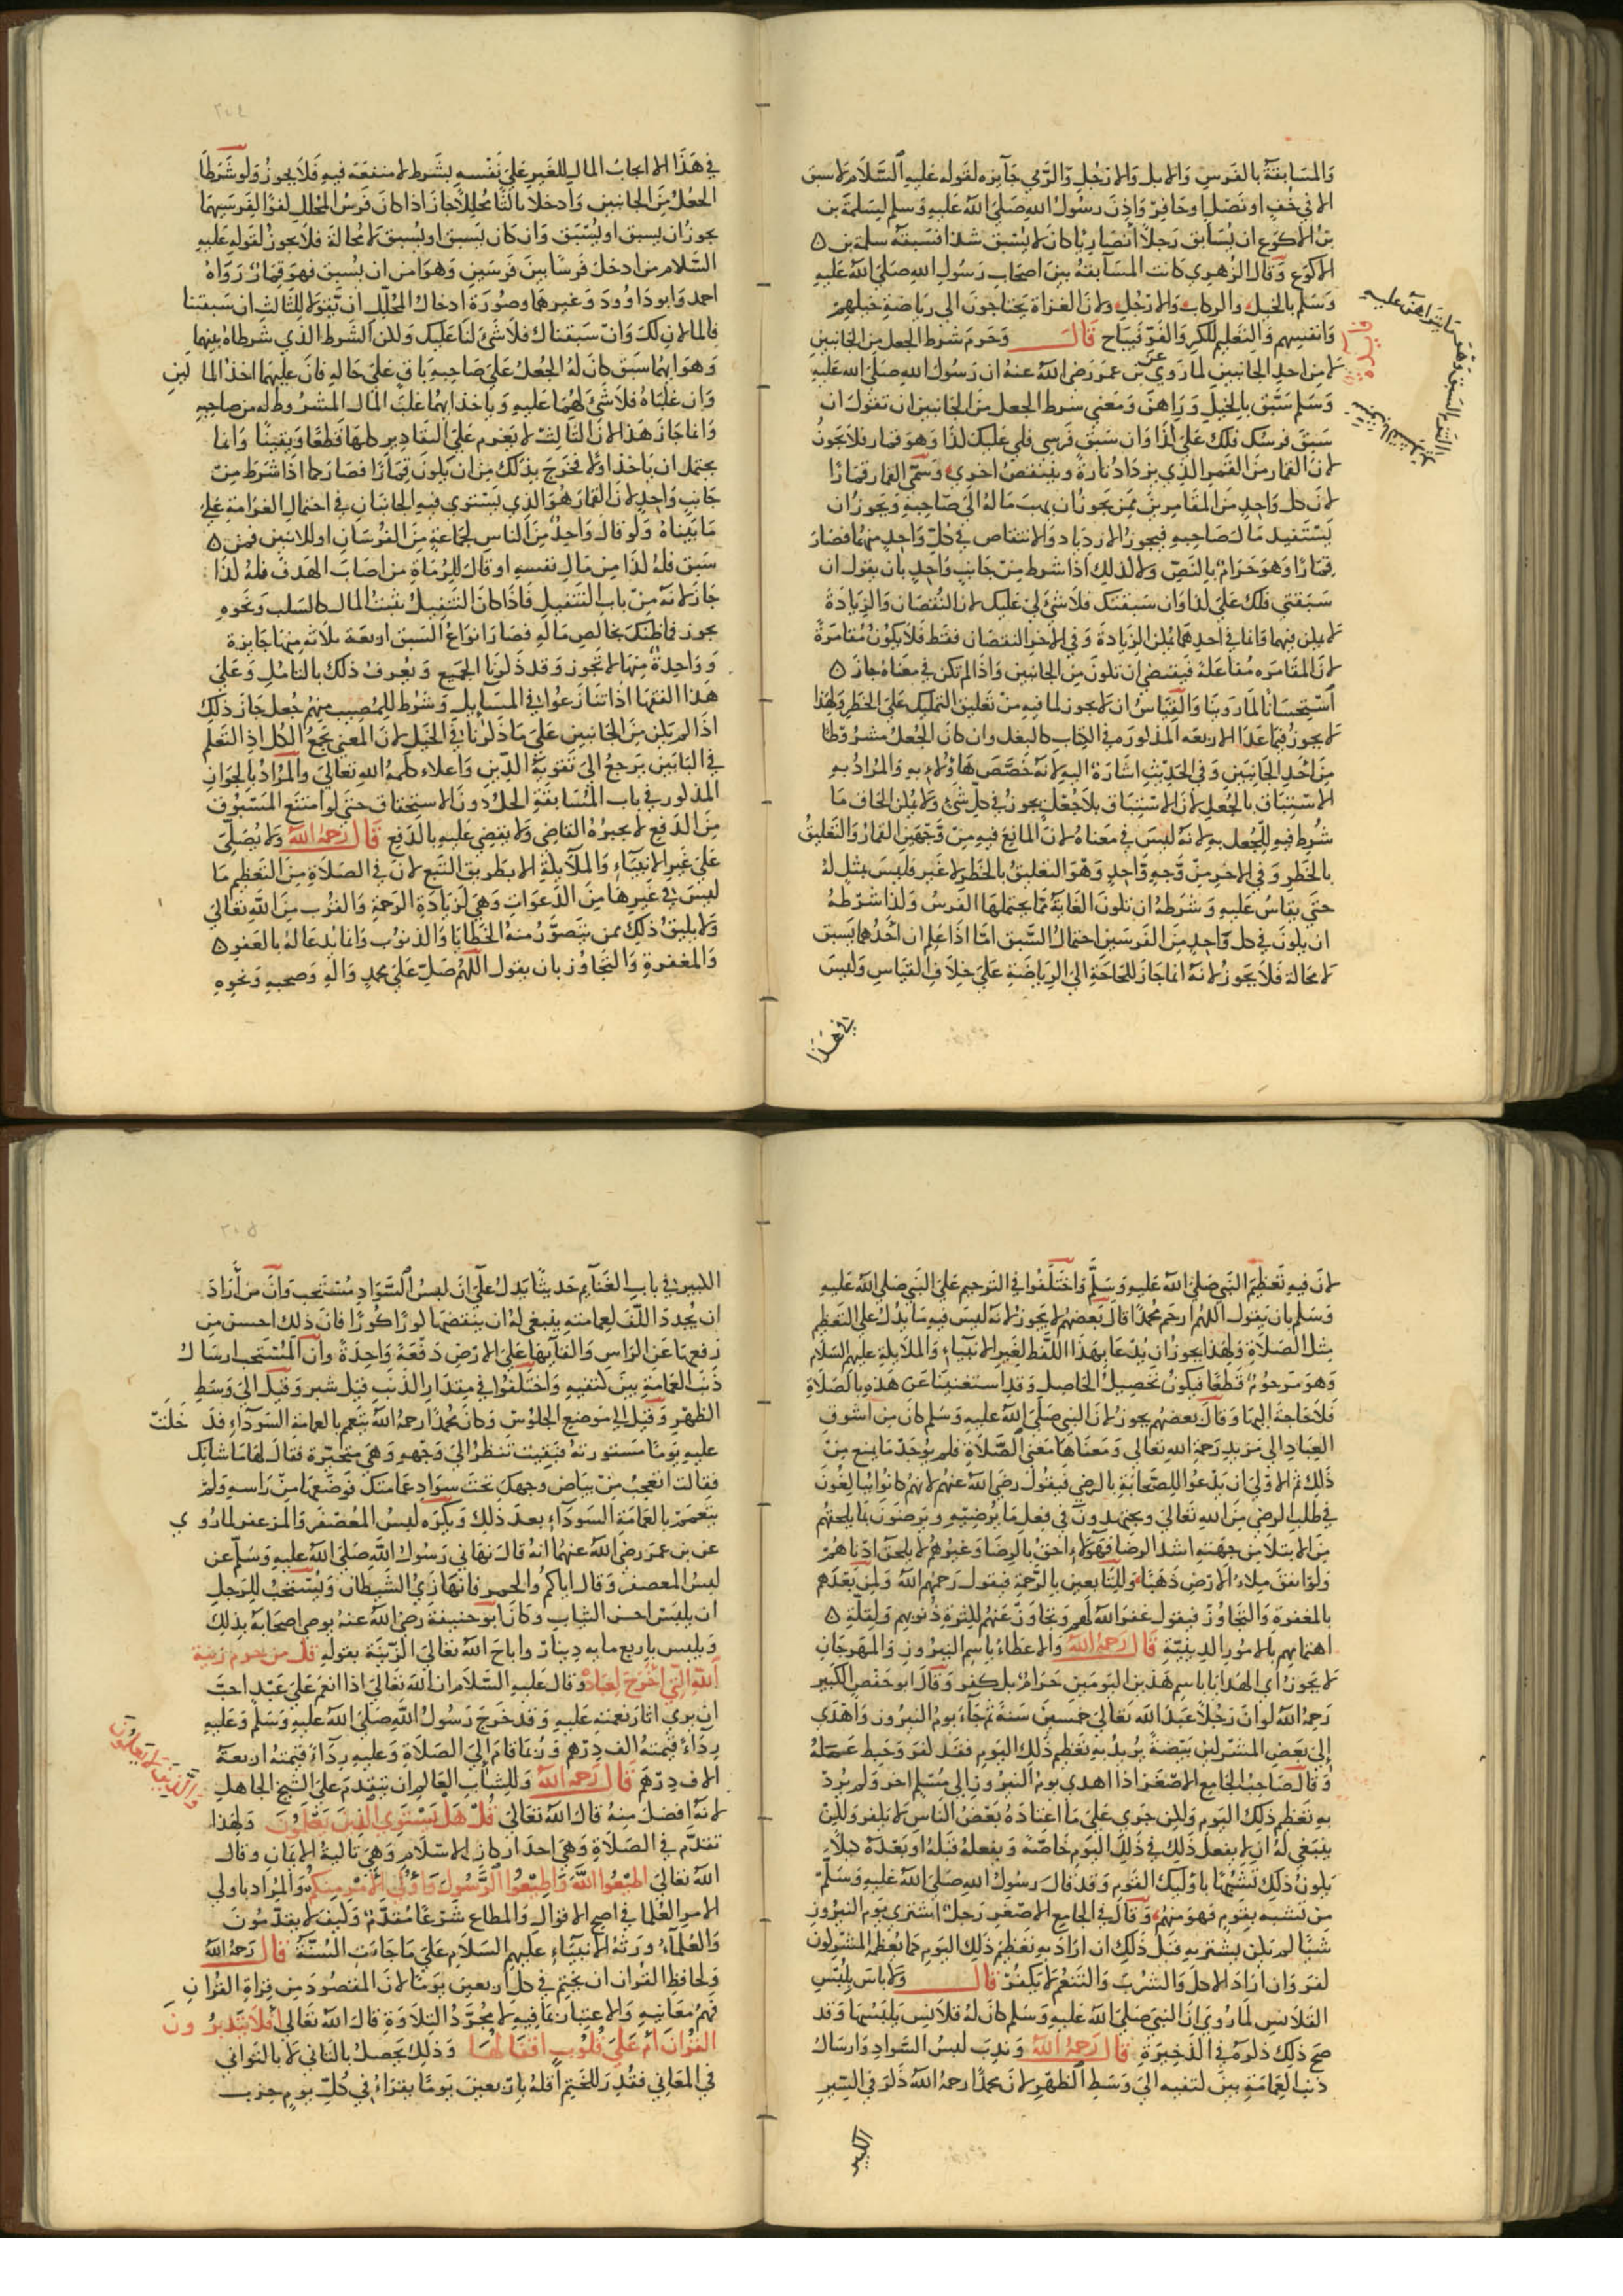 والمسابقة بالفرس والابل والارجل والرمي جايزه لقوله عليه السلام لا سبق
الا في خف او نصل او حافر واذن رسول الله صلى الله عليه وسلم لسلمة بن
بن الاكوع ان يسابق رجلا انصاريا كان لا يسبق شدا فسبقه سلمة بن ه
الاكوع وقال الزهري كانت المسابقة بين اصحاب رسول الله صلى الله عليه
وسلم بالخيل والركاب والارجل ولان الغزاة يحتاجون الى رياضة خيلهم
وانفسهم والتعليم للكر والفر فيباح قال وحرم شرط الجعل من الجانبين
لا من احد الجانبين لما روي عن بن عمر رضي الله عنه ان رسول الله صلى الله عليه
وسلم سبق بالخيل وراهن ومعنى شرط الجعل من الجانبين ان تقول ان
سبق فرسك فلك علي كذا وان سبق فرسي فلي عليك كذا وهو قمار فلا يجوز
لان القمار من القمر الذي يزداد تارة وينتقص اخري وسمي القمار قمارا
لان كل واحد من المقامرين ممن يجوز ان يذهب ماله الى صاحبه ويجوز ان
يستفيد مال صاحبه فيجوز الازدياد والانتقاص في كل واحد منهما فصار
قمارا وهو حرام بالنص ولا كذلك اذا شرط من جانب واحد بان يقول ان
سبقتني فلك علي كذا وان سبقتك فلا شئ لي عليك لان النقصان والزيادة
لا يمكن فيهما وانما في احدهما يمكن الزيادة وفي الاخر النقصان فقط فلا يكون مقامرة
لان المقامره مفاعلة فيقتضي ان تكون من الجانبين واذا لم تكن في معناه جاز ه
استحسانا لما روينا والقياس ان لا يجوز لما فيه من تعليق التمليك على الخطر ولهذا
لا يجوز فيما عدا الاربعه المذكورة في الكتاب كالبغل وان كان الجعل مشروطا
من احد الجانبين وفي الحديث اشارة اليه لانه خصص هاؤلاء به والمراد به
الاستباق بالجعل لان الاستباق بلا جعل يجوز في كل شئ ولا يمكن الحاق ما
شرط فيه الجعل به لانه ليس في معناه لان المانع فيه من وجهين القمار والتعليق
بالخطر وفي الاخر من وجه واحد وهو التعليق بالخطر لا غير فليس بمثل له
حتى يقاس عليه وشرطه ان تكون الغاية مما يحتملها الفرس وكذا شرطه
ان يكون في كل واحد من الفرسين احتمال السبق اما اذا علم ان احدهما يسبق
لا محالة فلا يجوز لانه انما جاز للحاجة الى الرياضة على خلاف القياس وليس
في هذا
٢٠٤
في هذا الا ايجاب المال للغير على نفسه بشرط لا منفعة فيه فلا يجوز ولو شرطا
الجعل من الجانبين وادخلا ثالثا محللا جاز اذا كان فرس المحلل كفوا لفرسيهما
يجوز ان يسبق او يسبق وان كان يسبق او يسبق لا محالة فلا يجوز لقوله عليه
السلام من ادخل فرسا بين فرسين وهو امن ان يسبق فهو قمار رواه
احمد وابو داوود وغيرهما وصورة ادخال المحلل ان يقولا للثالث ان سبقتنا
فالمالان لك وان سبقناك فلا شئ لنا عليك ولكن الشرط الذي شرطاه بينهما
وهو ايهما سبق كان له الجعل على صاحبه باق على حاله فان غلبهما اخذ المالين
وان غلباه فلا شئ لهما عليه وياخذ ايهما غلب المال المشروط له من صاحبه
وانما جاز هذا لان الثالث لا يغرم على التقادير كلها قطعا ويقينا وانما
يحتمل ان ياخذ او لا فخرج بذلك من ان يكون قمارا فصار كما اذا شرط من
جانب واحد لان القمار هو الذي يستوي فيه الجانبان في احتمال الغرامة على
ما بيناه ولو قال واحد من الناس لجماعة من الفرسان او للاثنين فمن ه
سبق فله كذا من مال نفسه او قال للرماة من اصاب الهدف فله كذا
جاز لانه من باب التنفيل فاذا كان التنفيل بيت المال كالسلب ونحوه
يجوز فما ظنك بخالص ماله فصار انواع السبق اربعة ثلاثه منها جايزة
وواحدة منها لا تجوز وقد ذكرنا الجميع ويعرف ذلك بالتامل وعلى
هذا الفقها اذا تنازعوا في المسايل وشرط للمصيب منهم جعل جاز ذلك
اذا لم يكن من الجانبين على ما ذكرنا في الخيل لان المعنى يجمع الكل اذ التعلم
في البابين يرجع الى تقوية الدين واعلاء كلمة الله تعالى والمراد بالجواز
المذكور في باب المسابقة الحل دون الاستحقاق حتى لو امتنع المسبوق
من الدفع لا يجبره القاضي ولا يقضي عليه بالدفع قال رحمه الله ولا يصلى
على غير الانبياء والملايكة الا بطريق التبع لان في الصلاة من التعظيم ما
ليس في غيرها من الدعوات وهي لزيادة الرحمة والقرب من الله تعالى
ولا يليق ذلك ممن يتصور منه الخطايا والذنوب وانما يدعا له بالعفو ه
والمغفرة والتجاوز بان يقول اللهم صل على محمد واله وصحبه ونحوه
لان فيه تعظيم النبي صلى الله عليه وسلم واختلفوا في الترحيم على النبي صلى الله عليه
وسلم بان يقول اللهم ارحم محمدا قال بعضهم لا يجوز لانه ليس فيه ما يدل على التعظيم
مثل الصلاة ولهذا يجوز ان يدعا بهذا اللفظ لغير الانبياء والملايكة عليهم السلام
وهو مرحوم قطعا فيكون تحصيل الحاصل وقد استغنينا عن هذه بالصلاة
فلا حاجة اليها وقال بعضهم يجوز لان النبي صلى الله عليه وسلم كان من اشوق
العباد الى مزيد رحمة الله تعالى ومعناها معنى الصلاة فلم يوجد ما يمنع من
ذلك ثم الاولى ان يدعوا للصحابة بالرضي فيقول رضي الله عنهم لانهم كانوا يبالغون
في طلب الرضي من الله تعالى ويجتهدون في فعل ما يرضيه ويرضون بما يلحقهم
من الابتلا من جهته اشد الرضا فهولاء احق بالرضا وغيرهم لا يلحق ادناهم
ولو انفق ملاء الارض ذهبا وللتابعين بالرحمة فيقول رحمهم الله ولمن بعدهم
بالمغفرة والتجاوز فيقول غفر الله لهم وتجاوز عنهم لكثرة ذنوبهم ولقلة ه
اهتمامهم بالامور الدينية قال رحمه الله والاعطاء باسم النيروز والمهرجان
لا يجوز اي الهدايا باسم هذين اليومين حرام بل كفر وقال ابو حفص الكبير
رحمه الله لو ان رجلا عبد الله تعالى خمسين سنة ثم جاء يوم النيروز واهدى
الى بعض المشركين بيضة يريد به تعظيم ذلك اليوم فقد كفر وحبط عمله
وقال صاحب الجامع الاصغر اذا اهدى يوم النيروز الى مسلم اخر ولم يرد
به تعظيم ذلك اليوم ولكن جرى على ما اعتاده بعض الناس لا يكفر ولكن
ينبغي له ان لا يفعل ذلك في ذلك اليوم خاصة ويفعله قبله او بعده كيلا
يكون ذلك تشبيها باوليك القوم وقد قال رسول الله صلى الله عليه وسلم
من تشبه بقوم فهو منهم وقال في الجامع الاصغر رجل اشترى يوم النيروز
شيا لم يكن يشتريه قبل ذلك ان اراد به تعظيم ذلك اليوم كما يعظمه المشركون
كفر وان اراد الاكل والشرب والتنعم لا يكفر قال ولا باس بلبس
القلانس لما روي ان النبي صلى الله عليه وسلم كان له قلانس يلبسها وقد
صح ذلك ذكره في الذخيرة قال رحمه الله وندب لبس السواد وارسال
ذنب العمامة بين كتفيه الى وسط الظهر لان محمدا رحمه الله ذكر في السير
الكبير
٢٠٥
الكبير في باب الغنايم حديثا يدل على ان لبس السواد مستحب وان من اراد
ان يجدد اللف لعمامته ينبغي له ان ينقضها كورا كورا فان ذلك احسن من
رفعها عن الراس والقايها على الارض دفعة واحدة وان المستحب ارسال
ذنب العمامة بين كتفيه واختلفوا في مقدار الذنب قيل شبر وقيل الى وسط
الظهر وقيل الى موضع الجلوس وكان محمد رحمه الله يتعمم بالعمامة السوداء فدخلت
عليه يوما مستورته فبقيت تنظر الى وجهه وهي متحيرة فقال لها ما شانك
فقالت اتعجب من بياض وجهك تحت سواد عمامتك فوضعها من راسه ولم
يتعمم بالعمامة السوداء بعد ذلك ويكره لبس المعصفر والمزعفر لما روي
عن بن عمر رضي الله عنهما انه قال نهاني رسول الله صلى الله عليه وسلم عن
لبس المعصفر وقال اياكم والحمر فانها زي الشيطان ويستحب للرجل
ان يلبس احسن الثياب وكان ابو حنيفة رضي الله عنه يوصي اصحابه بذلك
ويلبس باربع مايه دينار واباح الله تعالى الزينة بقوله قل من حرم زينة
الله التي اخرج لعباده وقال عليه السلام ان الله تعالى اذا انعم على عبد احب
ان يرى اثار نعمته عليه وقد خرج رسول الله صلى الله عليه وسلم وعليه
رداء قيمته الف درهم وربما قام الى الصلاة وعليه رداء قيمته اربعة
الاف درهم قال رحمه الله وللشاب العالم ان يتقدم على الشيخ الجاهل
لانه افضل منه قال الله تعالى قل هل يستوي الذين يعلمون ولهذا
والذين لا يعلمون
تقدم في الصلاة وهي احد اركان الاسلام وهي تالية الايمان وقال
الله تعالى اطيعوا الله واطيعوا الرسول واولي الامر منكم والمراد باولي
الامر العلما في اصح الاقوال والمطاع شرعا مقدم وكيف لا يقدمون
والعلماء ورثة الانبياء عليهم السلام على ما جاءت السنة قال رحمه الله
ولحافظ القران ان يختم في كل اربعين يوما لان المقصود من قراة القران
فهم معانيه والاعتبار بما فيه لا مجرد التلاوة قال الله تعالى افلا يتدبرون
القران ام على قلوب اقفالها وذلك يحصل بالتاني لا بالتواني
في المعاني فقدر للختم اقله باربعين يوما بقراء في كل يوم حزب